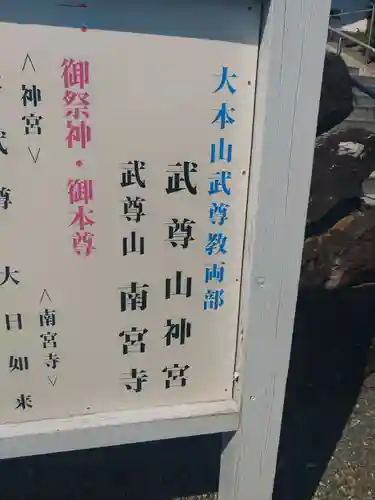 大本山武尊教両部
武尊山神宮
武尊山 南宮寺
一. 御祭神・御本尊
<神宮>
<南宮寺>
武尊
大日如来